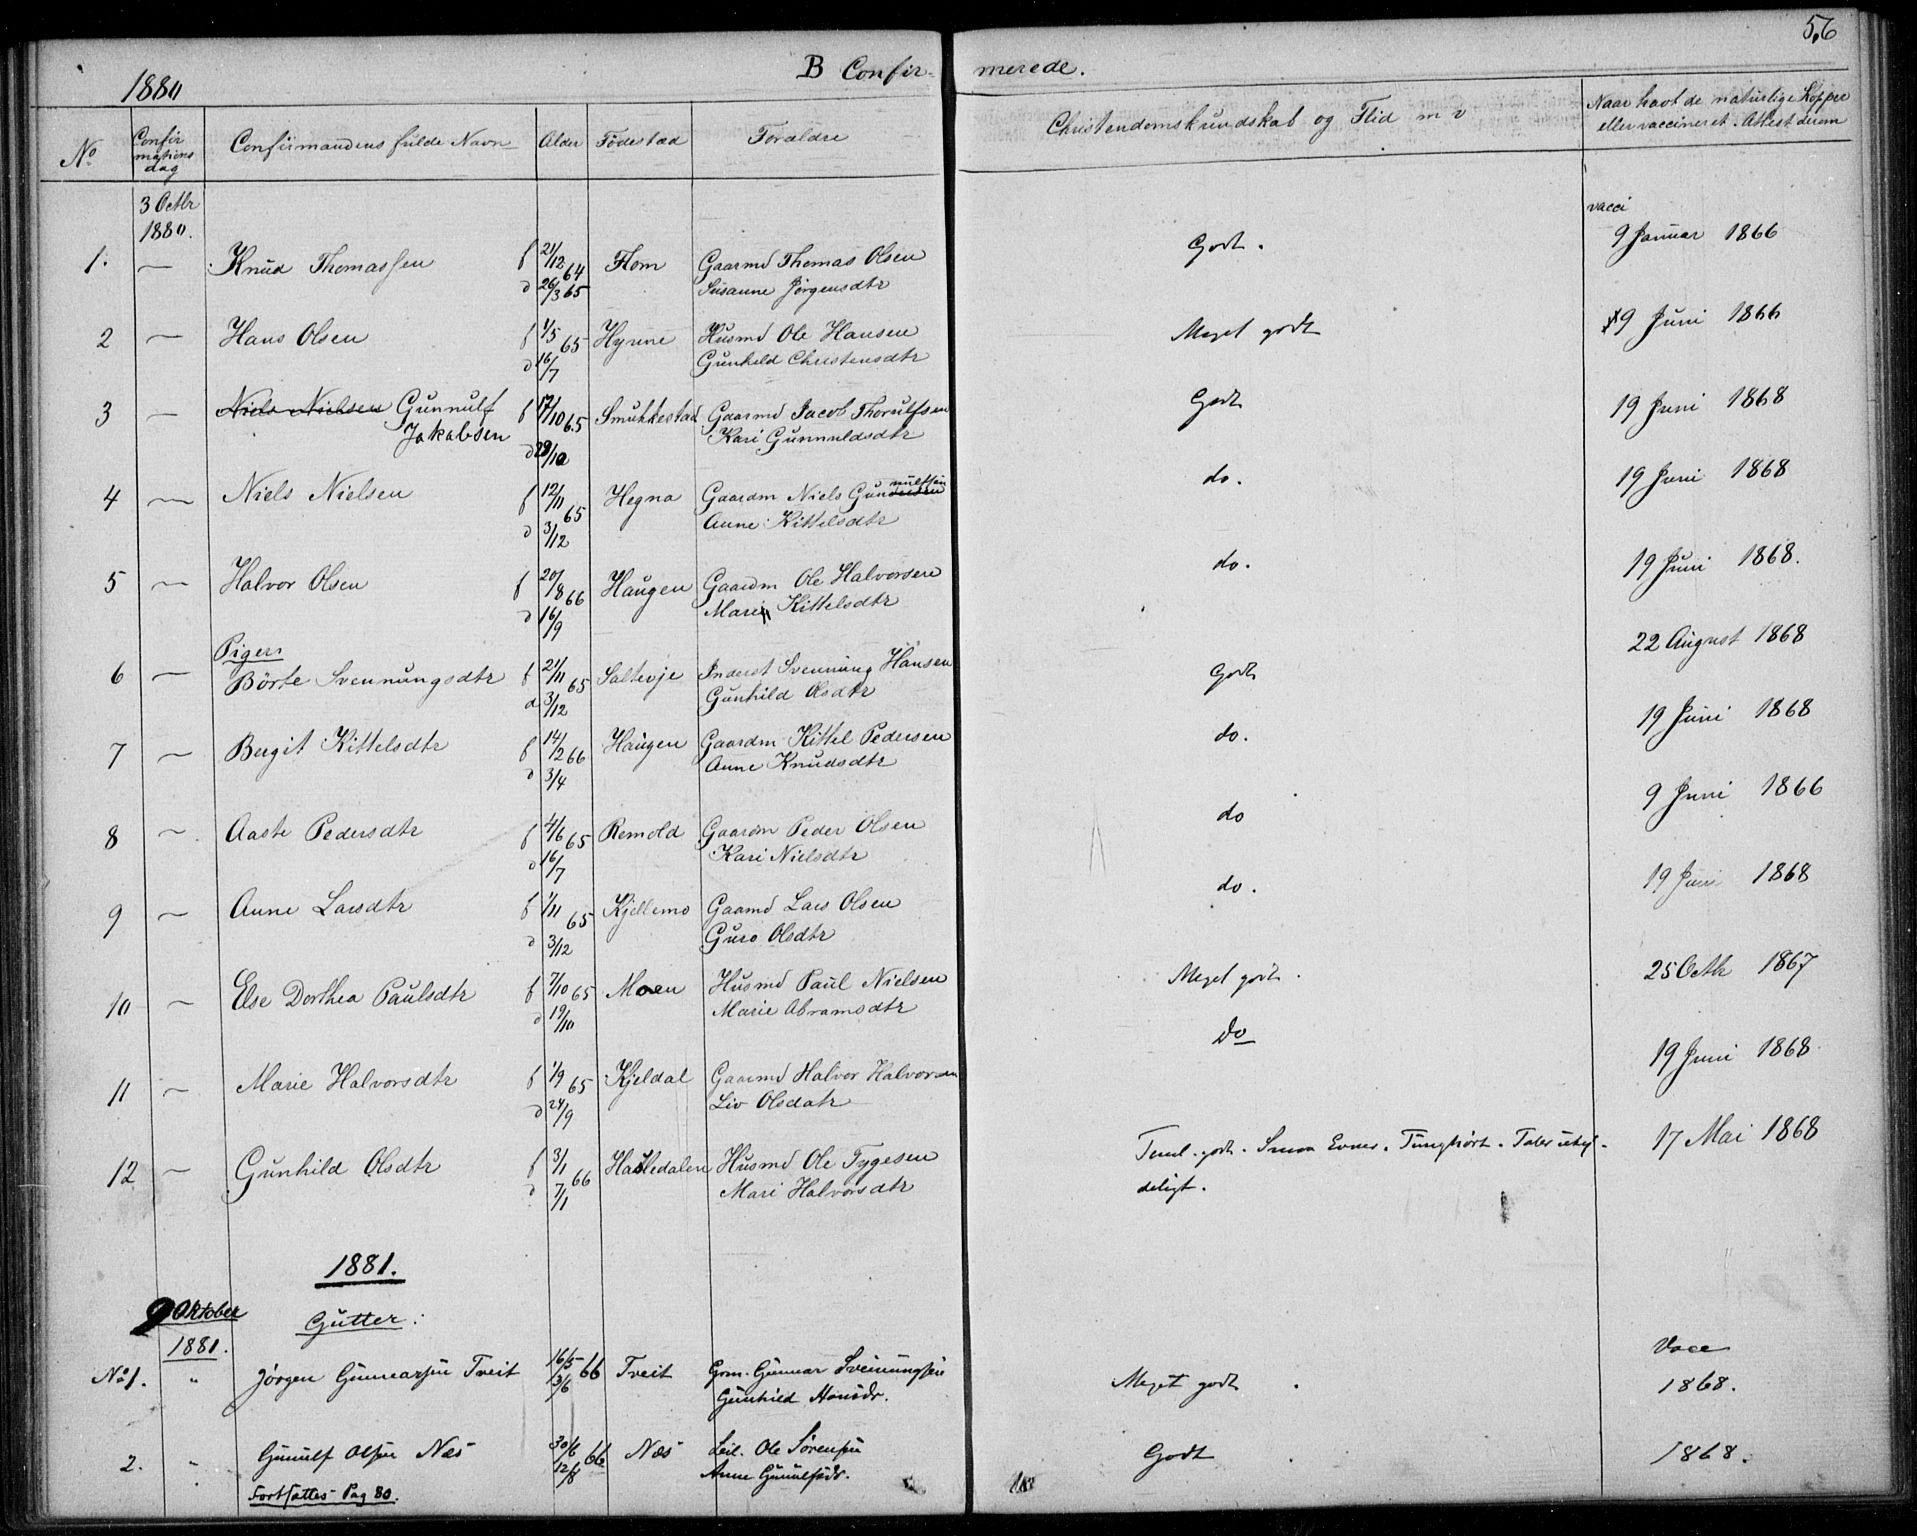 56
1880
B Confirmerede.
No
Confirmations dag
Confirmandens fulde Navn
Alder
Födested
Forældre
Christendomskundskab og Flid m v
Naar havt de naturlige Kopper eller vaccineret. Attest derom
3 Octbr 1880.
vacci
1. — Knud Thomassen f 21/12 64 Flom Gaarmd Thomas Olsen Godt. 9 Januar 1866
d 26/3 65 Susanne Jörgensdtr
2 — Hans Olsen f 1/5 65 Hynne Husmd Ole Hansen Meget godt 9 Juni 1866
d 16/7 Gunhild Christensdtr
3 — Niels Nielsen Gunnulf f 17/10 65 Smukkestad Gaarmd Jacob Thorulfsen Godt 19 Juni 1868
Jakobsen d 29/10 Kari Gunnuldsdtr
4 — Niels Nielsen f 12/11 65 Hegna Gaardm Niels Gunnulfsen do. 19 Juni 1868
d 3/12 Anne Kittelsdtr
5 — Halvor Olsen f 20/8 66 Haugen Gaardm Ole Halvorsen do. 19 Juni 1868.
d 16/9 Mari Kittelsdtr
Piger
6 — Börte Svennungsdtr f 21/11 65 Saltevje Inderst Svennung Hansen Godt 22 August 1868
d 3/12 Gunhild Olsdtr
7 — Bergit Kittelsdtr f 14/2 66 Haugen Gaardm Kittel Pedersen do. 19 Juni 1868
d 3/4 Anne Knudsdtr
8 — Aaste Pedersdtr f 4/6 65 Remold Gaardm Peder Olsen do 9 Juni 1866
d 16/7 Kari Nielsdtr
9 — Anne Larsdtr f 1/11 65 Kjellemo Gaarmd Lars Olsen do. 19 Juni 1868
d 3/12 Guro Olsdtr
10 — Else Dorthea Paulsdtr f 7/10 65 Moen Husmd Paul Nielsen Meget godt. 25 Octbr 1867
d 19/10 Marie Abramsdtr
11 — Marie Halvorsdtr f 1/9 65 Kjeldal Gaarmd Halvor Halvorsen Do 19 Juni 1868
d 24/9 Liv Olsdatr
12 — Gunhild Olsdtr f 3/1 66 Hasledalen Husmd Ole Tygesen Teml. godt. Smaa Evner. Tunghört. Taler utydeligt. 17 Mai 1868
d 7/1 Mari Halvorsdtr
1881.
9 Oktober 1881.
Gutter:
Vacc
No 1. " Jörgen Gunnarsen Tveit 16/5 66 Tveit Grm. Gunnar Sveinungsen Meget godt. 1868.
3/6 Gunhild Hansdr.
2. " Gunulf Olsen Næs 30/6 66 Næs Leil. Ole Sörensen Godt. 1868.
12/8 Anne Gunulfsdr.
Fortsættes Pag 80.